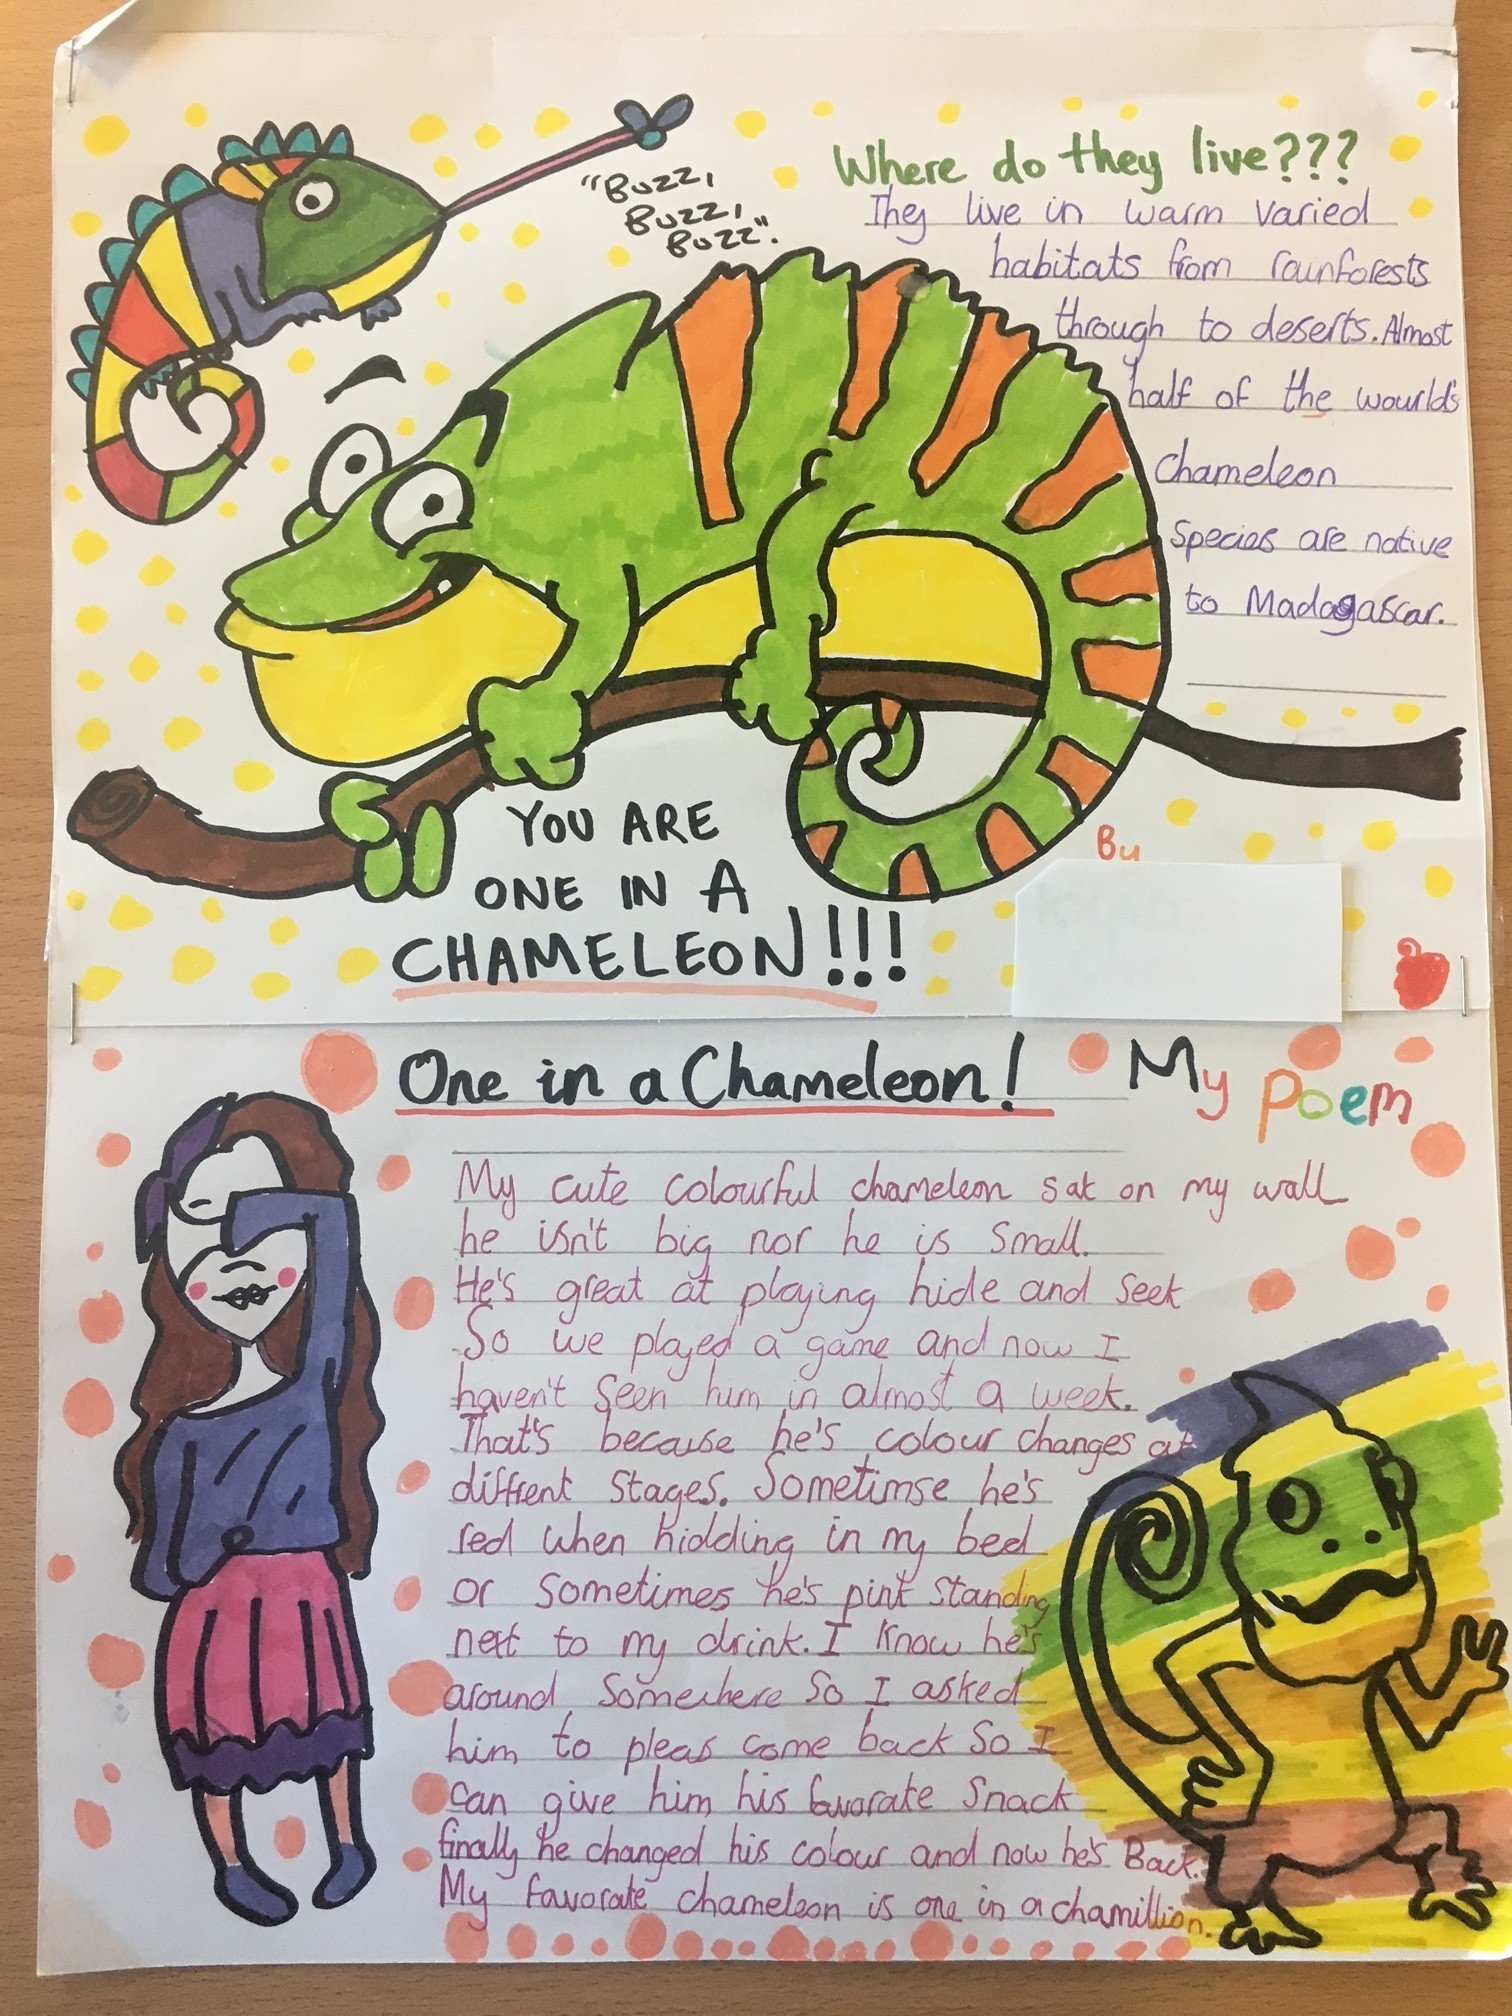 "Buzz,
Buzz,
Buzz".
Where do they live???
They live in warm varied
habitats from rainforests
through to deserts. Almost
half of the wourld's
Chameleon
Species are native
to Madagascar.
YOU ARE
ONE IN A
CHAMELEON!!!
Bu
One in a Chameleon!
My poem
My cute colourful chameleon sat on my wall
he isn't big nor he is small.
He's great at playing hide and seek
So we played a game and now I
haven't seen him in almost a week.
That's because he's colour changes at
diffrent stages. Sometimse he's
red when hidding in my bed
or sometimes he's pink standing
next to my drink. I know he's
around somewhere so I asked
him to pleas come back so I
can give him his favorate snack
finally he changed his colour and now he's Back.
My favorate chameleon is one in a chamillion.